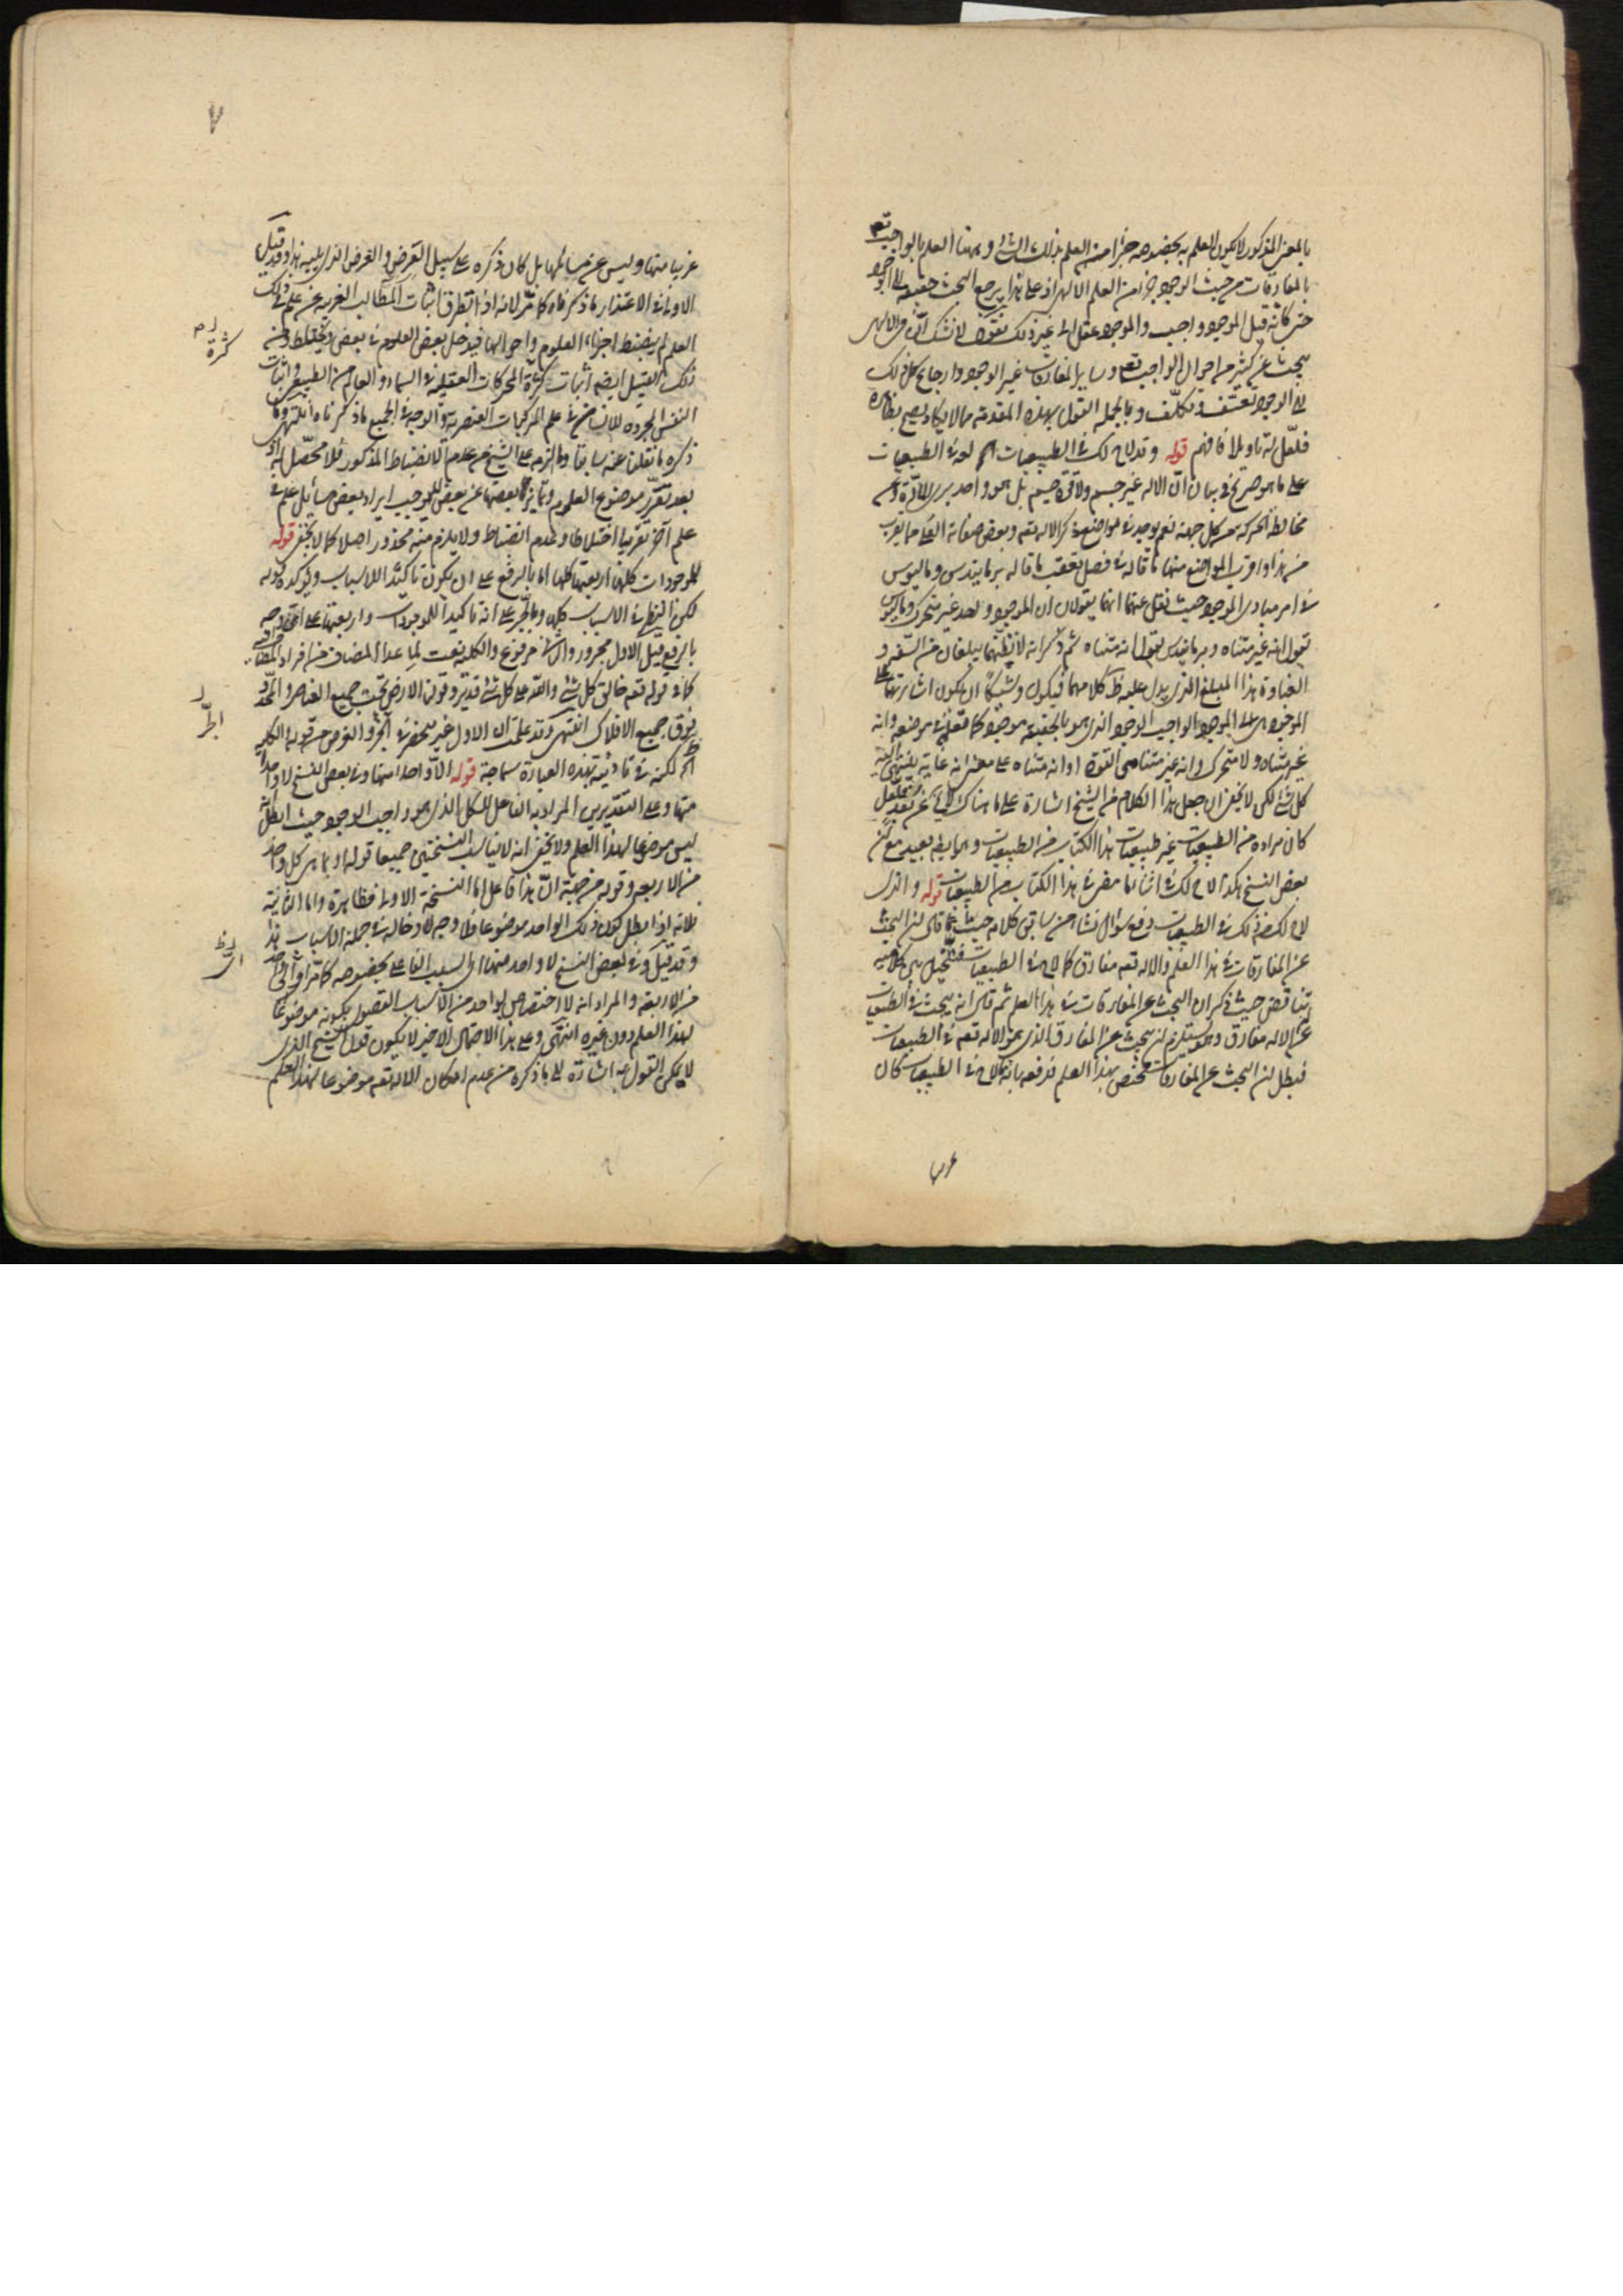 بالمعنى المذكور لا يكون العلم به بخصوصه جزءا من العلم بذلك الشئ وههنا العلم بالواجب تعه
بالمفارقات من حيث الوجود جزء من العلم الالهى اذ على هذا يرجع البحث حقيقة الى الوجود
حتى كانه قيل الموجود واجب والموجود عقل الى غير ذلك فنقول لا نشك ان فى الالهى
يبحث عن كثير من احوال الواجب تعه وساير المفارقات غير الوجود وارجاع كل ذلك
الى الوجود تعسّف وتكلّف وبالجملة القول بهذه المقدمة مما لا يكاد يصح بظاهره
فلعلّ له تاويلا فافهم قوله وقد لاح لك فى الطبيعيات
على ما هو صرح فى بيان ان الاله غير جسم ولا قوة جسم بل هو واحد برئ عن المادة وعن
مخالطة الحركة من كل جهة نعم يوجد فى مواضع ذكر الاله تعه وبعض صفاته العلى مما يقرب
من هذا واقرب المواضع منها ما قاله فى فصل تعقب ما قاله برمانيدس وماليسوس
فى امر مبادى الوجود حيث نقل عنهما انهما يقولان ان الموجود واحد غير متحرك وماليسوس
يقول انه غير متناه وبرمانيدس يقول انه متناه ثم ذكر انه لا يظنهما يبلغان من السفه و
الغباوة هذا المبلغ الذى يدل عليه ظ كلامهما فيكون وشيكا ان يكون اشارتهما الى
الموجود هى الى الموجود الواجب الوجود الذى هو بالحقيقة موجود كما نعلمه فى موضعه وانه
غير متناه ولا متحرك وانه غير متناهى القوة او انه متناه على معنى انه غاية ينتهى اليه
كل شئ لكن لا يخفى ان جعل هذا الكلام من الشيخ اشارة على ما هناك
كان مراده من الطبيعيات غير طبيعيات هذا الكتاب من الطبيعيات وهو ايضا بعيد مع ان فى
بعض النسخ هكذا لاح لك فى اثنا ما مضى فى هذا الكتاب من الطبيعيات قوله والذى
لاح لك من ذلك فى الطبيعيات دفع سؤال نشا من سابق كلامه حيث قال ان البحث
عن المفارقات فى هذا العلم والاله تعه مفارق كما لاح فى الطبيعيات فيتخيل بين كلاميه
تناقض حيث ذكر ان البحث عن المفارقات فى هذا العلم ثم قال انه يبحث فى الطبيعيات
عن الاله مفارق وهو يستلزم ان يبحث عن المفارق الذى هو الاله تعه فى الطبيعيات
فبطل ان البحث عن المفارقات مختص بهذا العلم فدفعه بانه ما لاح فى الطبيعيات كان
غريبا منها وليس من مسائلها بل كان ذكره على سبيل العرض والغرض الذى يليه هذا وقد قيل
الاولى فى الاعتذار ما ذكرناه كما مرّ لانه اذا تطرق اثبات المطالب الغريبة عن علم فى ذلك
العلم لم ينضبط اجزاء العلوم واحوالها فيدخل بعض العلوم فى بعض ويختلط ومن
ذلك القبيل ايضا اثبات كثرة المحركات العقلية فى السماء والعالم من الطبيعى واثبات
النفس المجردة للانسان فى علم المركبات العنصرية والوجه فى الجميع ما ذكرناه انتهى وما
ذكره ما نقلنا عنه سابقا وما الزمه على الشيخ من عدم الانضباط المذكور فلا محصّل له اذ
بعد تقرّر موضوع العلوم وتمايز بعضها عن بعض لا يوجب ايراد بعض مسائل علم فى
علم آخر تقريبا اختلاطا وعدم انضباط ولا يلزم منه محذور اصلا كما لا يخفى قوله
للموجودات كلها اربعتها كلها اما بالرفع على ان يكون تاكيدا للاسباب ويؤكده قوله
لكن النظر فى الاسباب كلها وبالجر على انه تاكيد للموجودات واربعتها على اى وجه
بالرفع قيل الاول مجرور والثانى مرفوع والكلية نعت لما عدا المضاف من افراد المضاف
كما فى قوله تعه خالق كل شئ والله على كل شئ قدير وقولنا الارض تحت جميع العناصر والمحدد
فوق جميع الافلاك انتهى وقد علمت ان الاول غير منحصر فى الجر والغرض من قوله الكلية
لكن فى تادية بهذه العبارة سماجة قوله الا واحدا منها وفى بعض النسخ لا واحد
منها وعلى التقديرين المراد به الفاعل للكل الذى هو واجب الوجود حيث ابطل انه
ليس موضوعا لهذا العلم ولا يخفى انه لا يناسب النسختين جميعا قوله او بما هى كل واحد
من الاربعة وقوله من جهة ان هذا فاعل اما النسخة الاولى فظاهرة واما الثانية
فلانه اذا بطل كون ذلك الواحد موضوعا فلا وجه لادخاله فى جملة الاسباب هذا
وقد قيل وفى بعض النسخ لا واحد منها اى السبب الفاعلى بخصوصه كما مرّ او اى واحد
من الاربعة والمراد انه لا اختصاص لواحد من الاسباب القصوى بكونه موضوعا
لهذا العلم دون غيره انتهى وعلى هذا الاحتمال الاخير لا يكون قول الشيخ الذى
لا يمكن القول به اشارة الى ما ذكره من عدم امكان الاله تعه موضوعا لهذا العلم
كثرة
٧